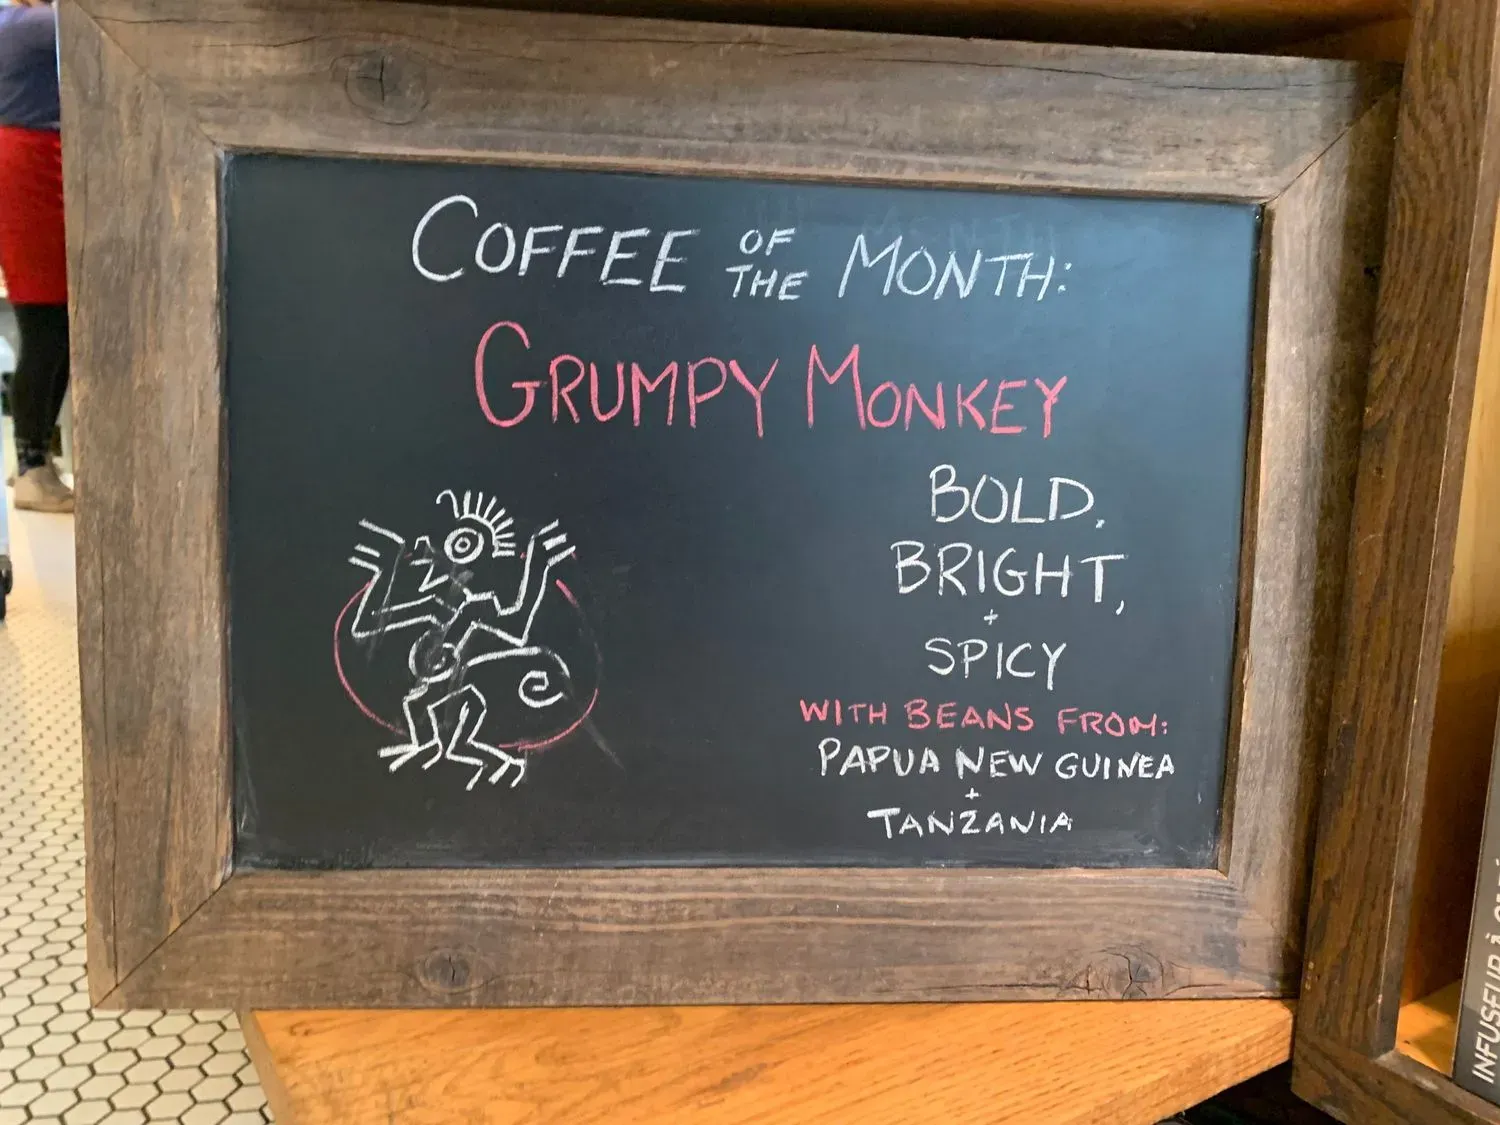 COFFEE OF THE MONTH:
GRUMPY MONKEY
BOLD,
BRIGHT,
+
SPICY
WITH BEANS FROM:
PAPUA NEW GUINEA
+
TANZANIA
INFUSEUR À